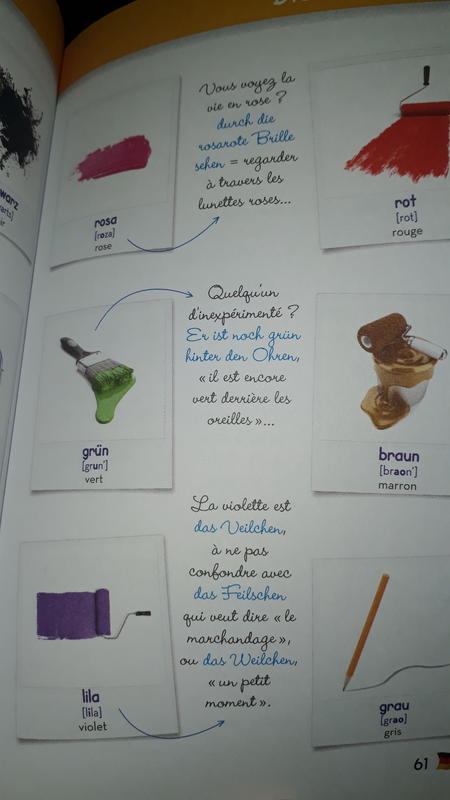 rosa
[roza]
rose
Vous voyez la
vie en rose ?
durch die
rosarote Brille
sehen = regarder
à travers les
lunettes roses...
rot
[rot]
rouge
grün
[grun']
vert
Quelqu'un
d'inexpérimenté ?
Er ist noch grün
hinter den Ohren,
« il est encore
vert derrière les
oreilles »...
braun
[braon']
marron
lila
[lila]
violet
La violette est
das Veilchen,
à ne pas
confondre avec
das Feilschen
qui veut dire « le
marchandage »,
ou das Weilchen,
« un petit
moment ».
grau
[grao]
gris
61